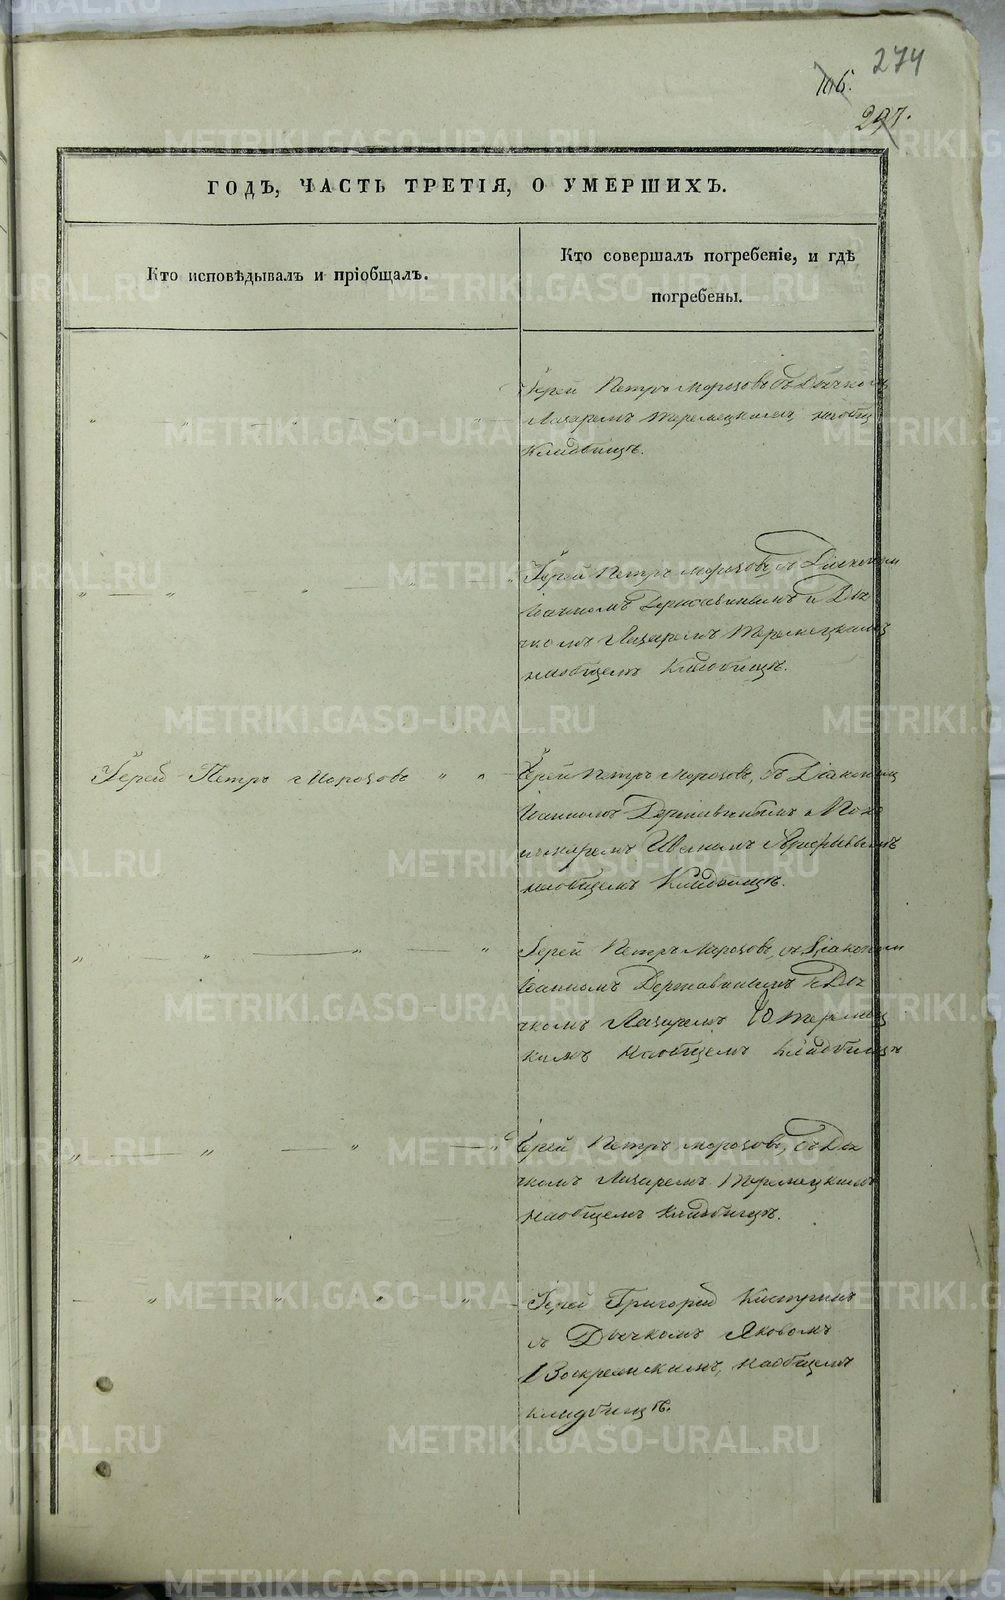 274
106.
297.
ГОДЪ, ЧАСТЬ ТРЕТІЯ, О УМЕРШИХЪ.
Кто исповѣдывалъ и пріобщалъ.
Кто совершалъ погребеніе, и гдѣ
погребены.
Іерей Петръ Морозовъ съ Дьячком
Лазаремъ наобщ
Кладбищѣ.
Іерей Петръ Морозовъ, съ Діакономъ
Іоанномъ Державинымъ и Дья
чкомъ Лазаремъ
наобщемъ Кладбищѣ.
Іерей Петръ Морозовъ
Іерей Петръ Морозовъ, съ Діакономъ
Іоанномъ Державинымъ и Поно
маремъ
наобщемъ Кладбищѣ.
Іерей Петръ Морозовъ, съ Діакономъ
Іоанномъ Державинымъ и Дья
чкомъ Лазаремъ
кимъ наобщемъ кладбищѣ
Іерей Петръ Морозовъ, съ Дья
чкомъ Лазаремъ
наобщемъ кладбищѣ.
Іерей Григорій
съ Дьячкомъ Яковомъ
Воскресенскимъ, наобщемъ
кладбищѣ.
METRIKI.GASO-URAL.RU